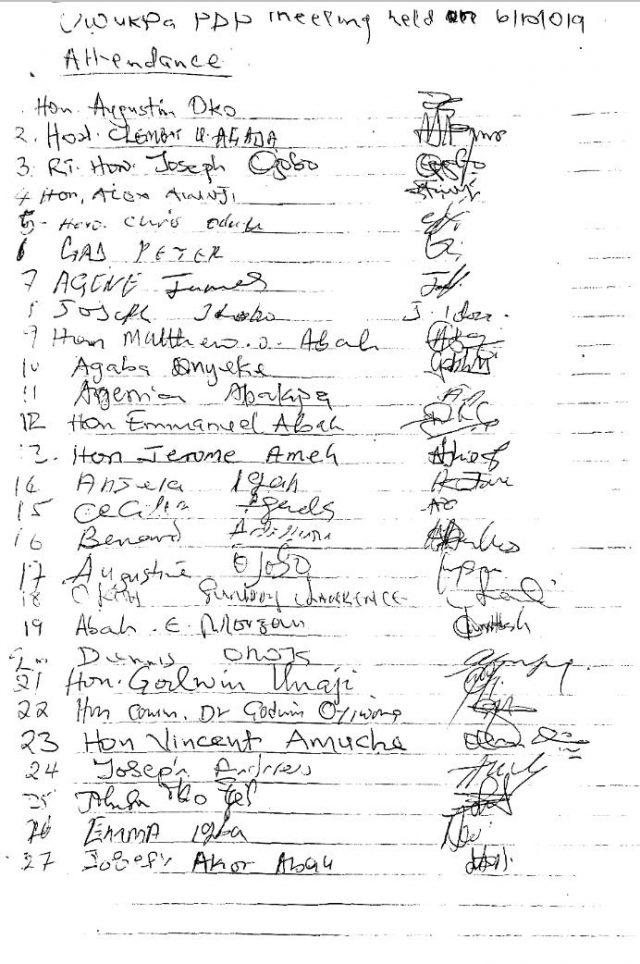 UWUKPA PDP meeting held on 6/10/019
Attendance
Hon. Augustin Oko
2. Hon. Clement U. AGADA
3. RT. Hon. Joseph Ojobo
4 Hon, Alex
5- Hon. Chris Oduh
6 GAD PETER
7 AGENE James
8 Joseph Idoko J. Idoko
9 Hon Matthew . O. Abah
10 Agaba Onyeke
11 Agenia Abakpa
12 Hon Emmanuel Abah
Hon Jerome Ameh
14 Angela Igah
15 Cecilia
16 Benard
17 Augustine Ojobo
18 Sunday LAWRENCE
19 Abah . E. Morgan
Dennis
21 Hon. Godwin Unaji
22 Hon comm. Dr Godwin Oyiwona
23 Hon Vincent Amuche
24 Joseph Andrew
25
26 EMMA Igba
27 Joseph Akor Abah